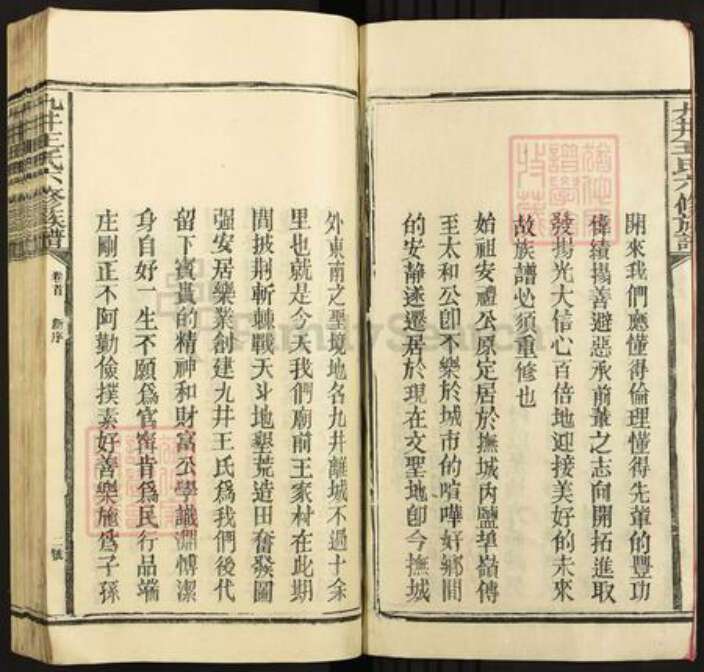 九井王氏六修族譜
開來我們應懂得倫理懂得先輩的豐功
偉績揚善避惡承前輩之志向開拓進取
發揚光大信心百倍地迎接美好的未來
故族譜必須重修也
始祖安禮公原定居於撫城內鹽埠嶺傳
至太和公卽不樂於城市的喧嘩好鄉間
的安靜遂遷居於現在文聖地卽今撫城
外東南之聖境地名九井離城不過十余
里也就是今天我們廟前王家村在此期
間披荆斬棘戰天斗地墾荒造田奮發圖
强安居樂業創建九井王氏爲我們後代
留下寶貴的精神和財富公學識淵愽潔
身自好一生不願爲官寗肯爲民行品端
庄剛正不阿勤儉撲素好善樂施爲子孫
九井王氏六修族譜
卷首 新序
二號
FamilySearch